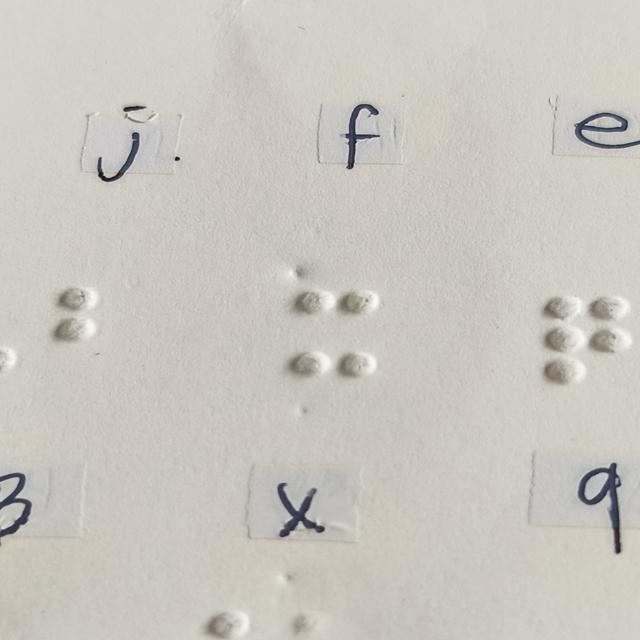 j f e
x q